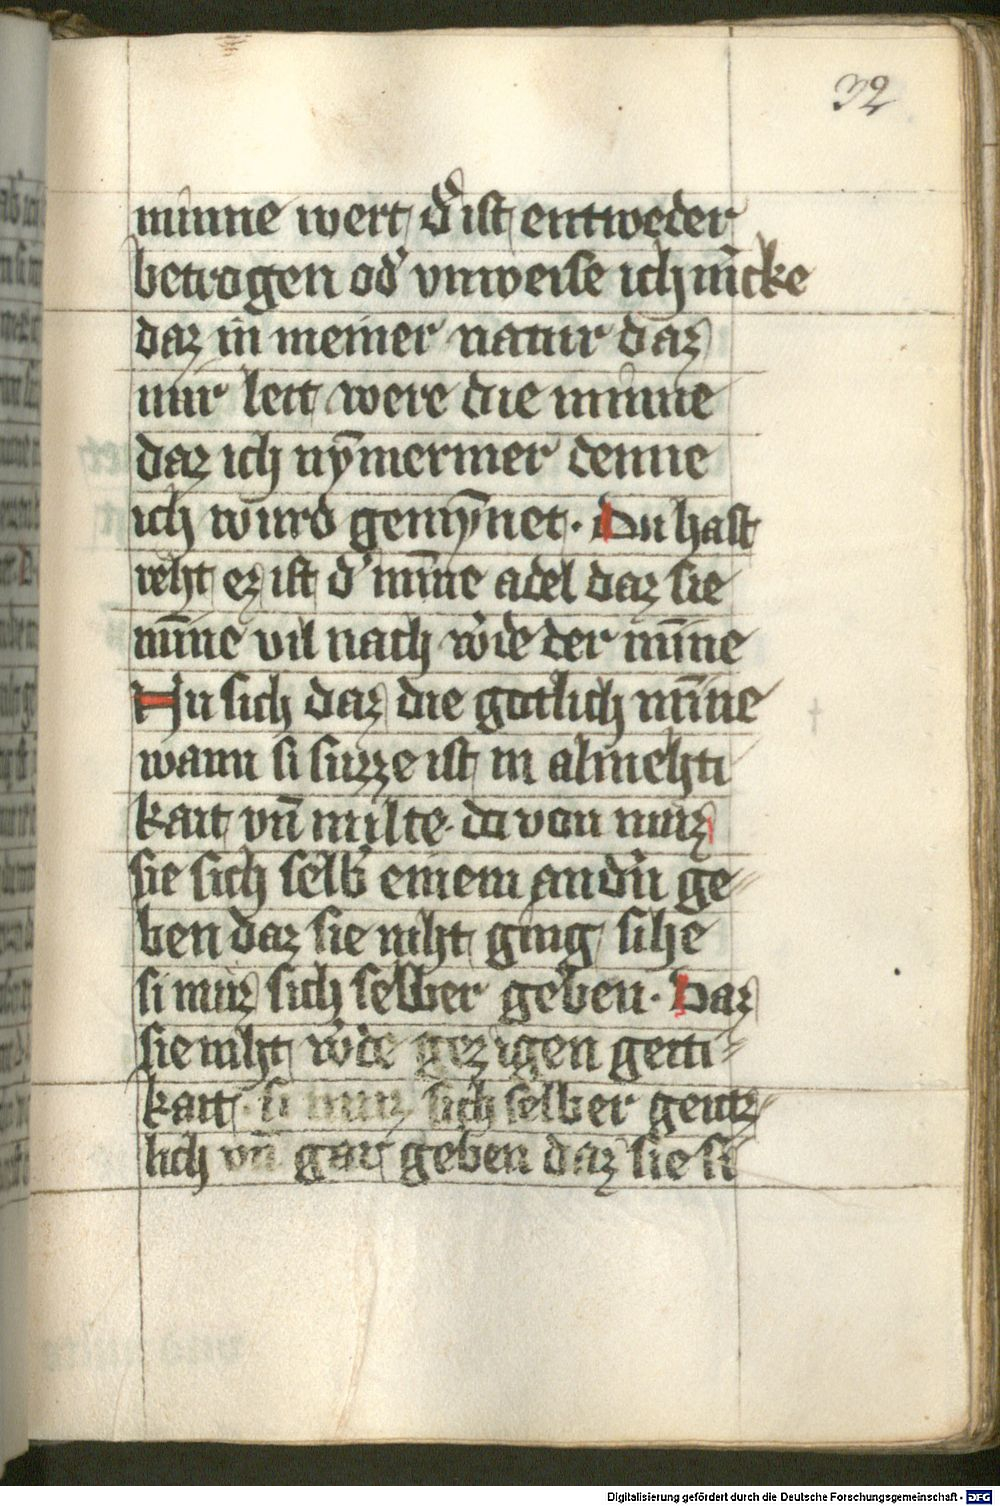 32
minne wert d̕ ist entweder
betrogen od̕ vnweise ich m̕cke
daz in meiner natur daz
mir leit were die minne
daz ich ny̅mermer denne
ich wurd gemy̅net. Du hast
reht ez ist d̕ mi̅ne adel daz sie
mi̅ne vil nach w̕de der mi̅ne
Nu sich daz die gotlich mi̅ne
wann si suzze ist in almehti
kait vn̅ milte. da von muz
sie sich selb̕ einem and̕n ge⸗
ben daz sie niht ging sihe
si muz sich selber geben. Daz
sie niht w̕de gezigen geiti⸗
kait. si muz sich selber gentz⸗
lich vn̅ gar geben daz sie si
Digitalisierung gefördert durch die Deutsche Forschungsgemeinschaft - DFG